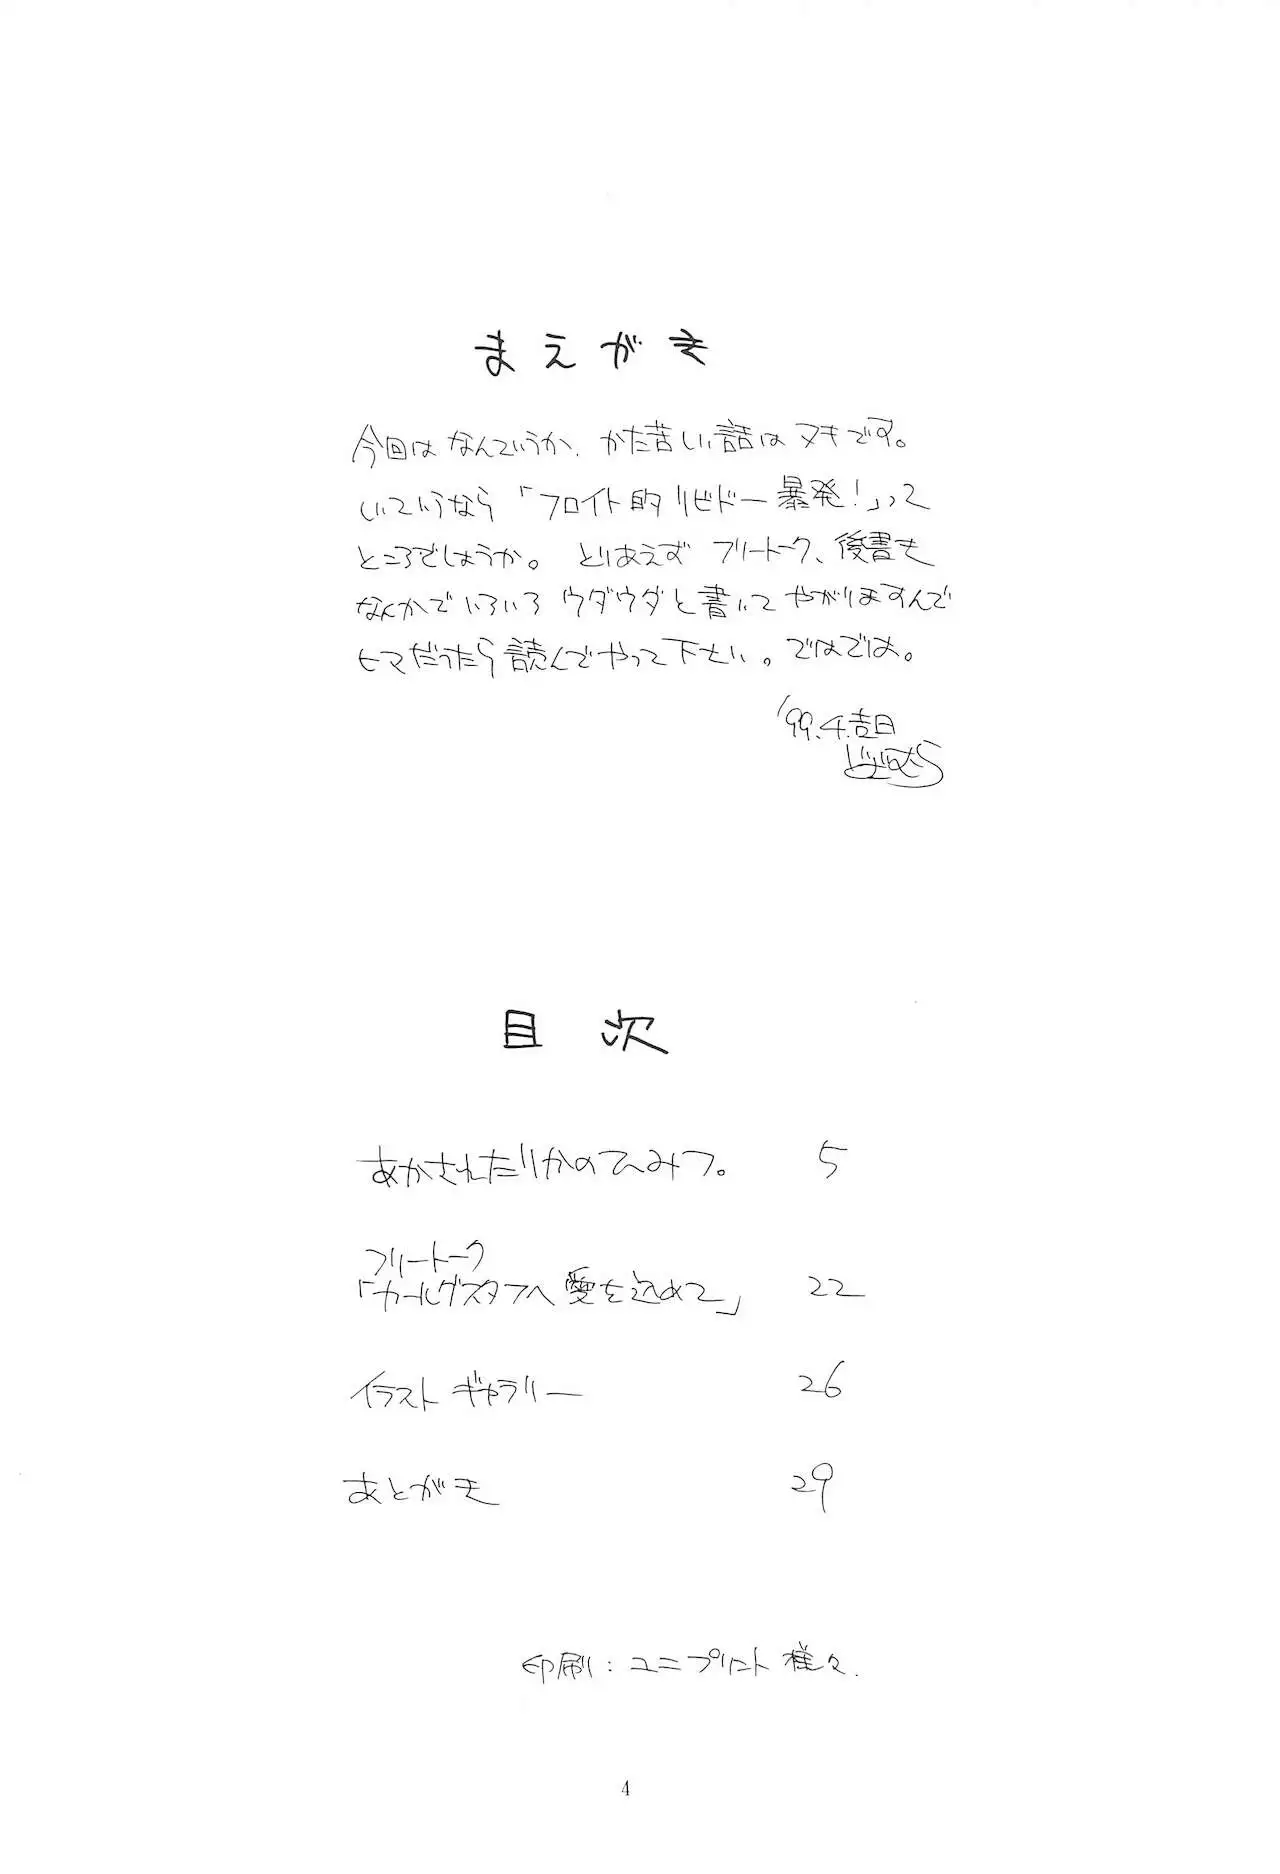 まえがき
今回はなんていうか、かた苦しい話はヌキです。
いていうなら「フロイト的リビドー暴発！」って
ところでしょうか。とりあえずフリートーク、後書も
なんかでいろいろウダウダと書いてやがりますんで
ヒマだったら読んでやって下さい。ではでは。
'99.4.吉日
目次
あかされたりかのひみつ。 5
フリートーク
「カールグスタフへ愛を込めて」 22
イラストギャラリー 26
あとがき 29
印刷：ユニプリント様々.
4